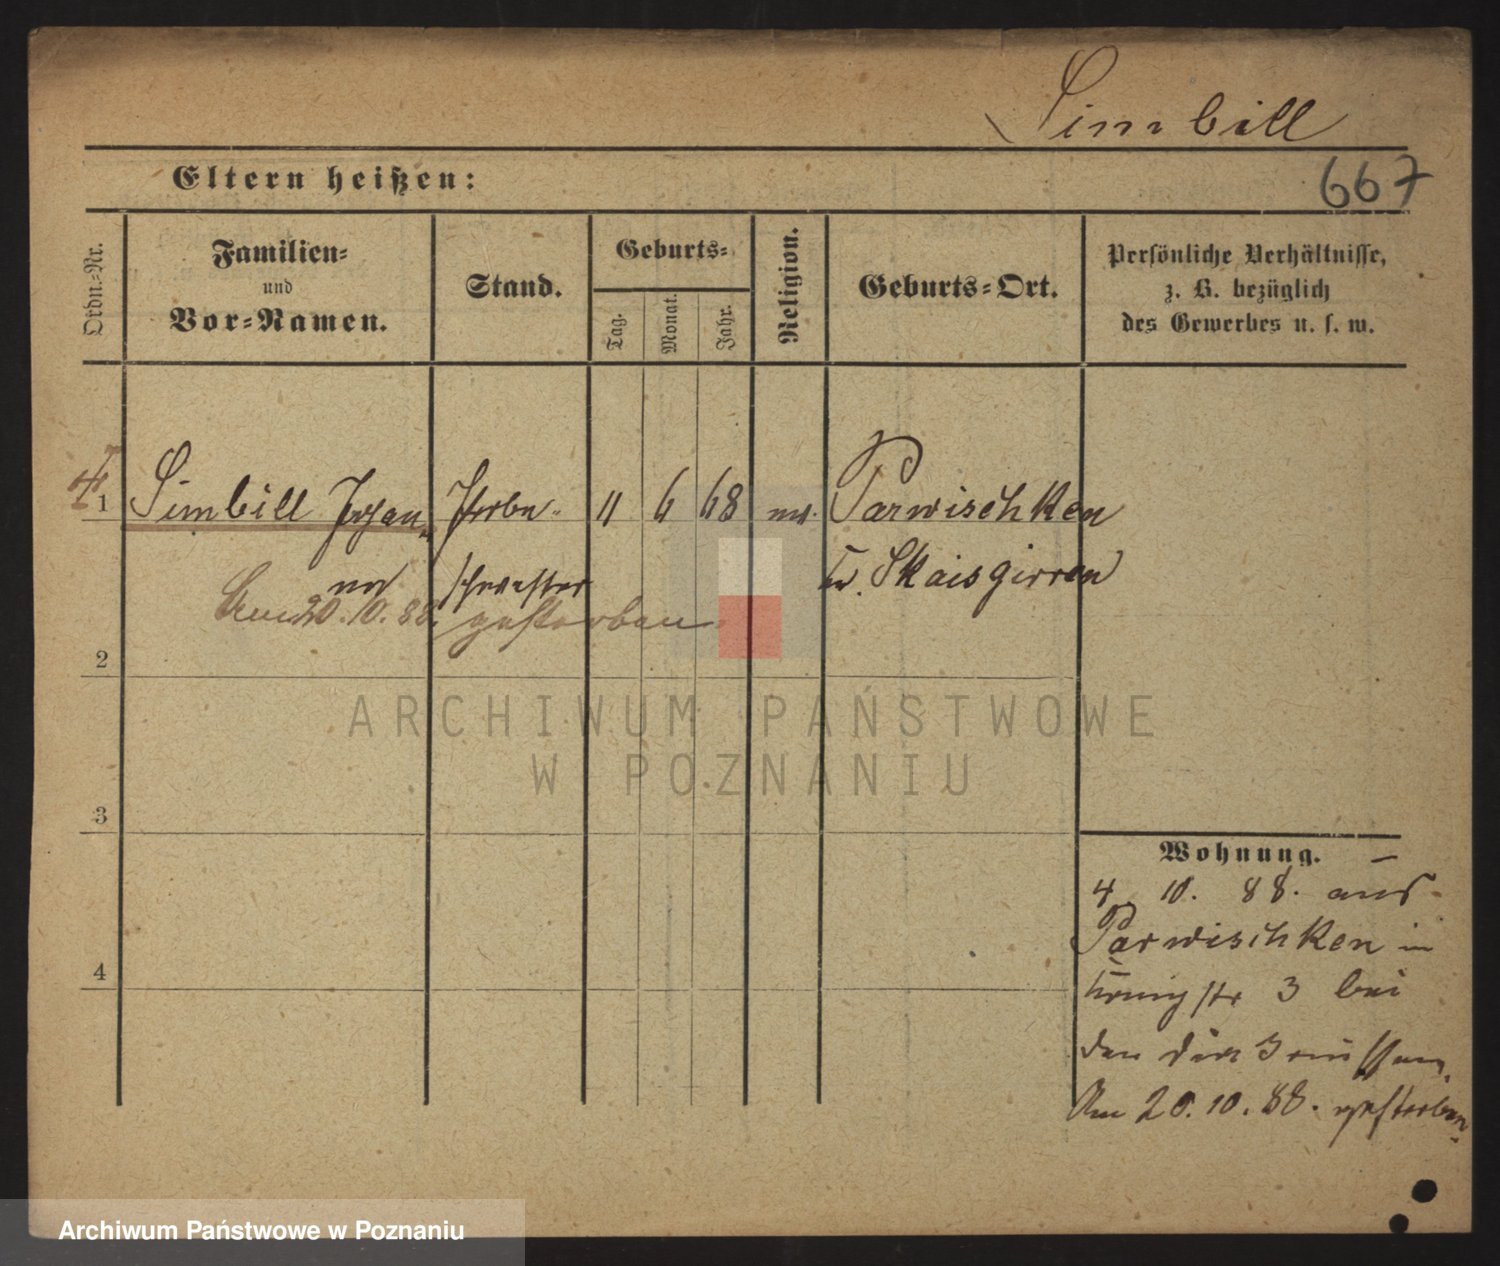 Simbill
Eltern heißen:
667
Ordn.-Nr.
Familien-
und
Vor-Namen.
Stand.
Geburts-
Tag.
Monat.
Jahr.
Religion.
Geburts-Ort.
Persönliche Verhältnisse,
z. B. bezüglich
des Gewerbes u. s. w.
1 Simbill 11 6 68 Parwischken
schwester Skaisgirren
Am 20.10.88. gestorben
2
3
4
Wohnung.
4. 10. 88. aus
Parwischken in
3 bei
den
Am 20.10.88. gestorben.
ARCHIWUM PAŃSTWOWE
W POZNANIU
Archiwum Państwowe w Poznaniu